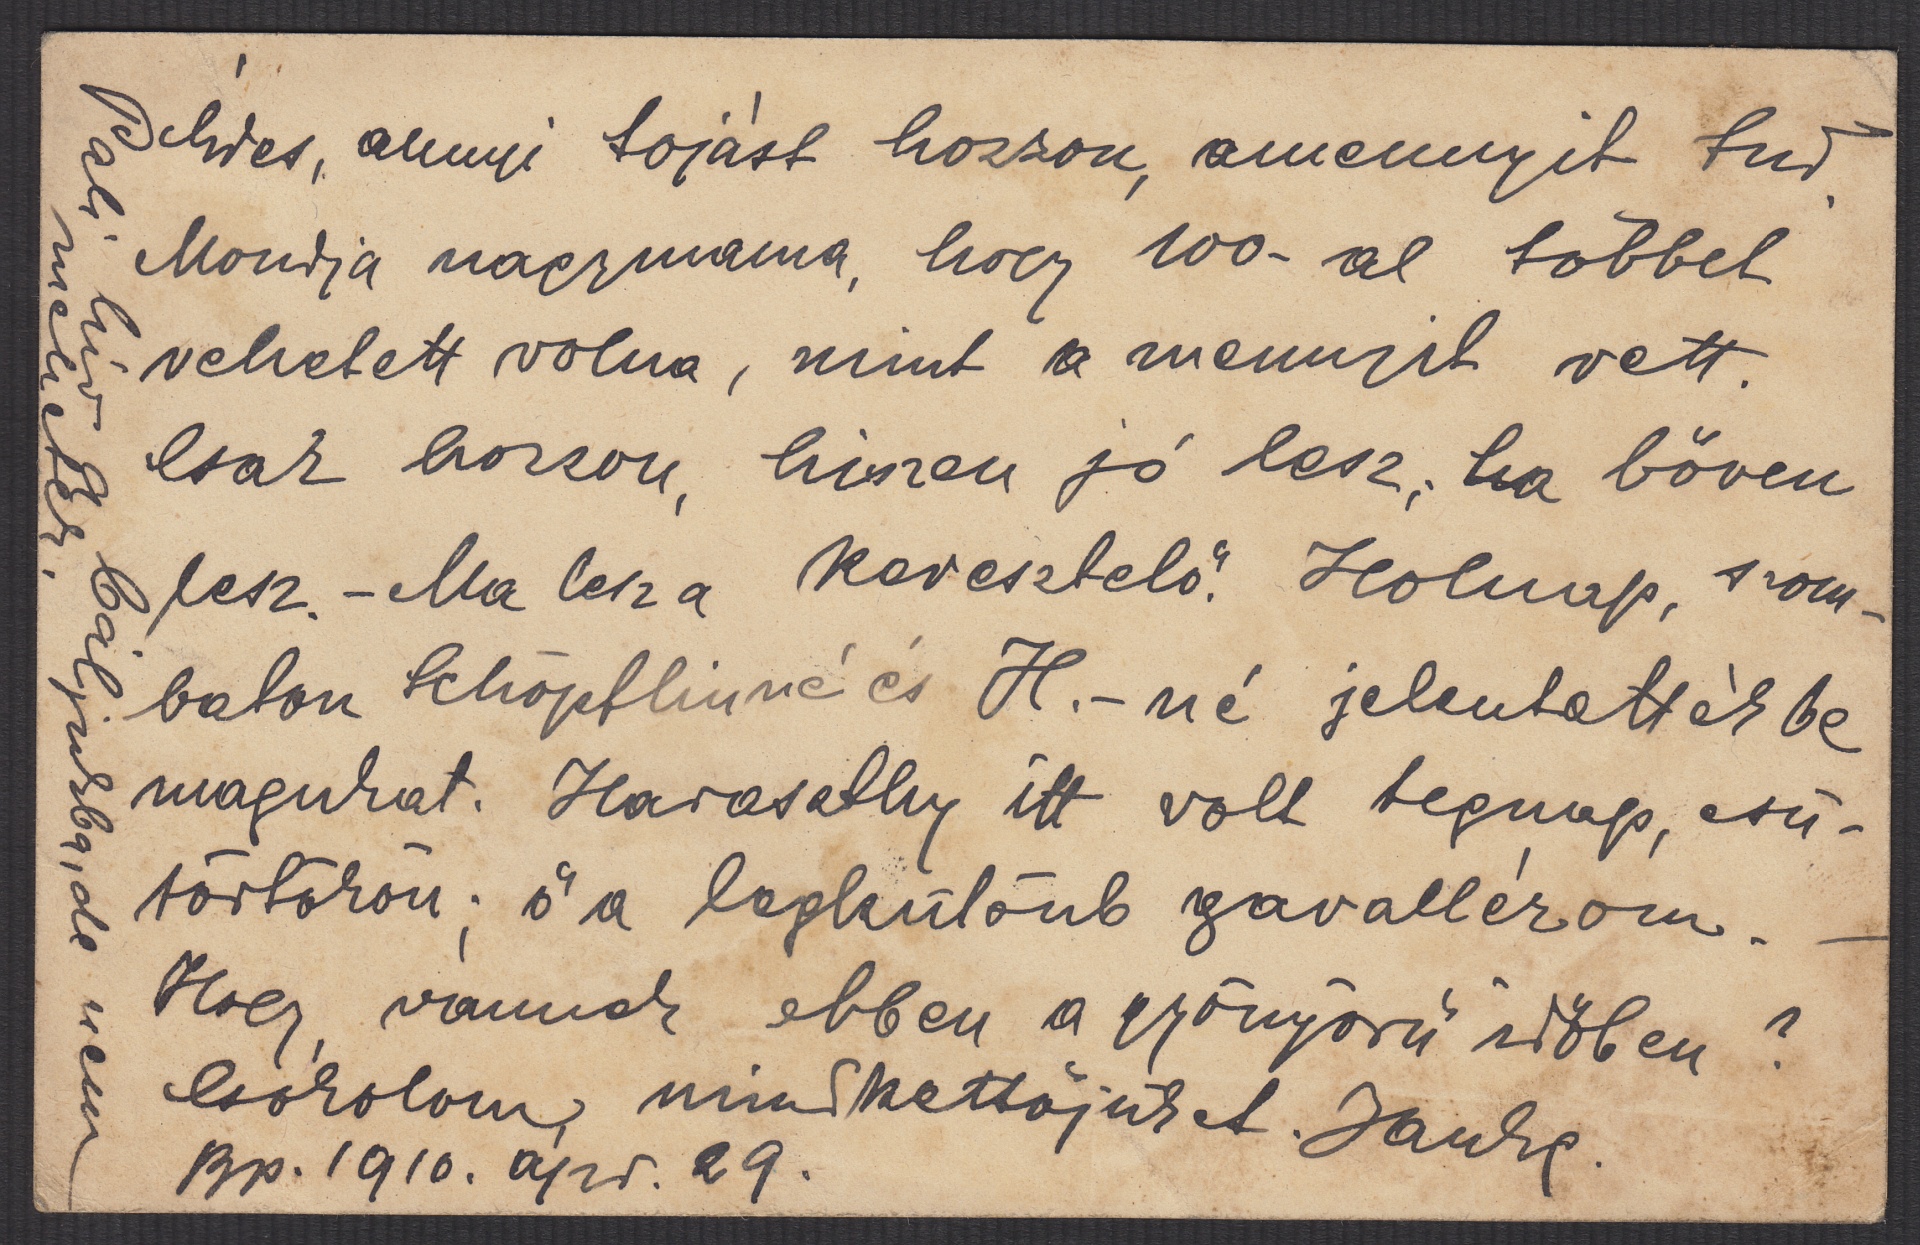 Édes, annyi tojást hozzon, amennyit tud.
Mondja nagymama, hogy 100-al többet
vehetett volna, mint a mennyit vett.
Csak hozzon, hiszen jó lesz, ha bőven
lesz. – Ma lesz a keresztelő. Holnap, szom-
baton Schöpflinné és H.-né jelentették be
magukat. Haraszthy itt volt tegnap, csü-
törtökön; ő a legkülönb gavallérom. –
Hogy vannak ebben a gyönyörű időben?
Csókolom mindkettőjüket. Janka.
Bp. 1910. ápr. 29.
Pali hív báljukba, de nem
mehetek.